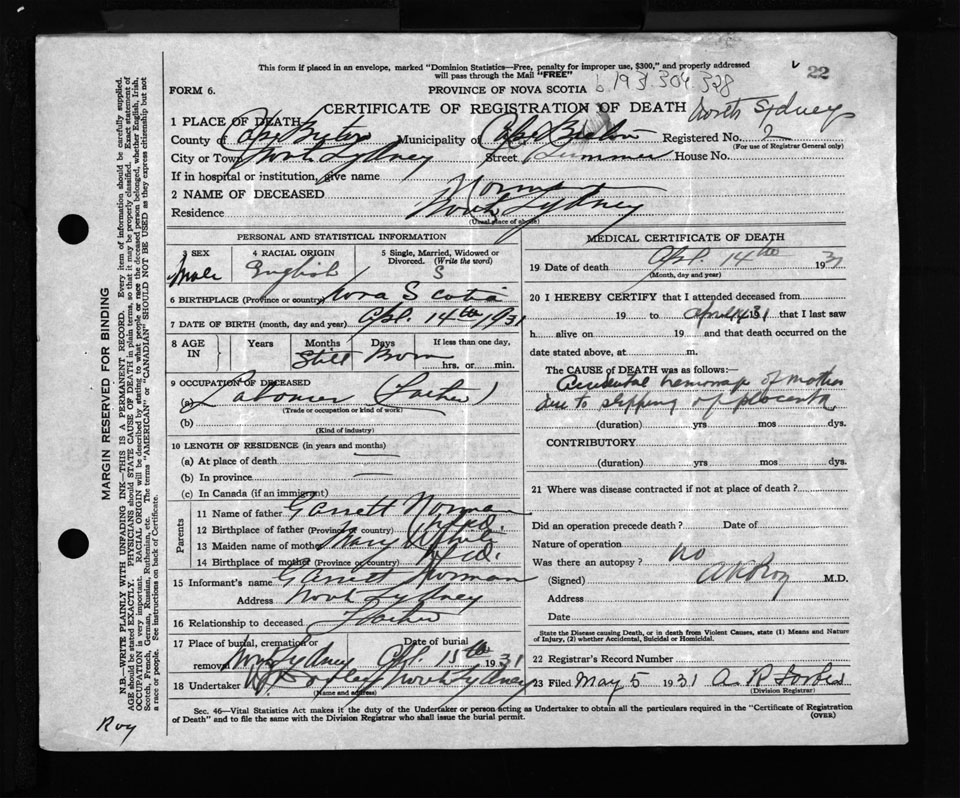 This form if placed in an envelope, marked "Dominion Statistics—Free, penalty for improper use, $300," and properly addressed
will pass through the Mail "FREE"
22
FORM 6.
PROVINCE OF NOVA SCOTIA
b.1931.304.328
CERTIFICATE OF REGISTRATION OF DEATH
North Sydney
1 PLACE OF DEATH—
County of Cape Breton Municipality of Cape Breton Registered No. 2
(For use of Registrar General only)
City or Town North Sydney Street Summer House No.
If in hospital or institution, give name
2 NAME OF DECEASED Norman
Residence North Sydney
(Usual place of abode)
PERSONAL AND STATISTICAL INFORMATION
3 SEX Male
4 RACIAL ORIGIN English
5 Single, Married, Widowed or Divorced. (Write the word) S
6 BIRTHPLACE (Province or country) Nova Scotia
7 DATE OF BIRTH (month, day and year) Apl. 14th 1931
8 AGE IN Years Months Days If less than one day, hrs. or min.
Still Born
9 OCCUPATION OF DECEASED
(a) Labourer (Father)
(Trade or occupation or kind of work)
(b)
(Kind of industry)
10 LENGTH OF RESIDENCE (in years and months)
(a) At place of death —
(b) In province —
(c) In Canada (if an immigrant)
Parents
11 Name of father Garrett Norman
12 Birthplace of father (Province or country) Nfld.
13 Maiden name of mother Mary White
14 Birthplace of mother (Province or country) Nfld.
15 Informant's name Garrett Norman
Address North Sydney
16 Relationship to deceased Father
17 Place of burial, cremation or removal North Sydney Date of burial Apl. 15th 1931
18 Undertaker North Sydney
(Name and address)
MEDICAL CERTIFICATE OF DEATH
19 Date of death Apl. 14th 1931
(Month, day and year)
20 I HEREBY CERTIFY that I attended deceased from
19 to April 14 31 that I last saw
h alive on 19 and that death occurred on
date stated above, at m.
The CAUSE of DEATH was as follows:—
Accidental hemorrage of mother
due to slipping of placenta
(duration) yrs mos dys.
CONTRIBUTORY
(duration) yrs mos dys.
21 Where was disease contracted if not at place of death?
Did an operation precede death? Date of
Nature of operation
Was there an autopsy? no
(Signed) Roy M.D.
Address
Date
State the Disease causing Death, or in death from Violent Causes, state (1) Means and Nature
of Injury, (2) whether Accidental, Suicidal or Homicidal.
22 Registrar's Record Number
23 Filed May 5 1931 A. R. Forbes
(Division Registrar)
Sec. 46—Vital Statistics Act makes it the duty of the Undertaker or person acting as Undertaker to obtain all the particulars required in the "Certificate of Registration
of Death" and to file the same with the Division Registrar who shall issue the burial permit.
(OVER)
MARGIN RESERVED FOR BINDING
N.B.—WRITE PLAINLY WITH UNFADING INK—THIS IS A PERMANENT RECORD. Every item of information should be carefully supplied.
AGE should be stated EXACTLY. PHYSICIANS should STATE CAUSE OF DEATH in plain terms, so that it may be properly classified. Exact statement of
OCCUPATION is very important. RACIAL ORIGIN will be described by stating to what people or race the deceased person belonged, whether English, Irish,
Scotch, French, German, Russian, Ruthenian, etc. The terms "AMERICAN" or "CANADIAN" SHOULD NOT BE USED as they express citizenship but not
a race or people. See instructions on back of Certificate.
Roy